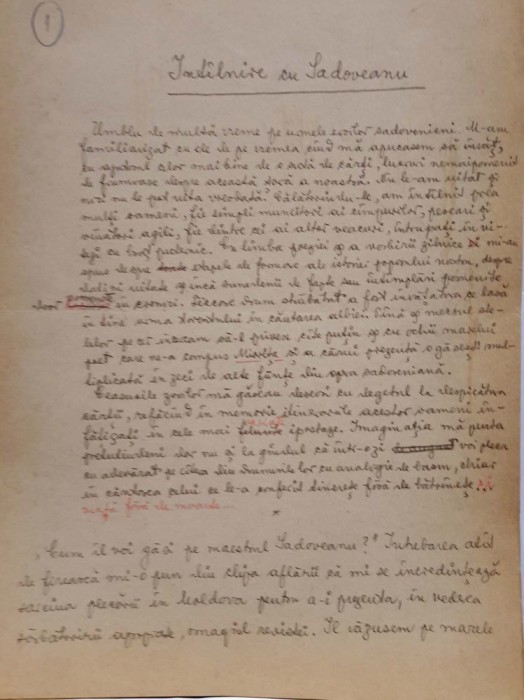 1
Întîlnire cu Sadoveanu
Umblu de multă vreme pe urmele eroilor sadovenieni. M-am
familiarizat cu ele de pe vremea cînd mă apucasem să învăț,
cu ajutorul celor mai bine de o sută de cărți, lucruri nemaipomenit
de frumoase despre această țară a noastră. Nu le-am uitat și
nici nu le pot uita vreodată. Călătorindu-le, am întîlnit prea
mulți oameni, fie simpli muncitori ai cîmpurilor, pescari și
vînători agili, fie dintre cei ai altor veacuri, întrupați în vi-
teji cu braț puternic. În limba poeziei și a vorbirii zilnice mi-au
spus despre etapele de frămare ale istoriei poporului nostru, despre
datini uitate și încă despre fapte sau întîmplări pomenite
deseori în cronici. Fiecare drum străbătut a fost învățătura ce lasă
în tine urma torentului în căutarea albiei. Pînă și mersul ste-
lelor pe cer încercam să-l privesc cîte puțin și cu ochii marelui
poet care ne-a compus Miorița și a cărui prezență o găsești mul-
tiplicată în zeci de alte ființe din opera sadoveniană.
Ceasurile zorilor mă găseau deseori cu degetul la despicătura
cărții, refăcînd în memorie itinerariile acestor oameni în-
fățișați în cele mai felurite ipostaze. Imaginația mă purta
pretutindeni dar nu și la gîndul că într-o zi voi pleca
cu adevărat pe unul din drumurile lor cu analogie de basm, chiar
în căutarea celui ce le-a prefăcut tinerețe fără de bătrînețe și
viață fără de moarte...
*
„Cum îl voi găsi pe maestrul Sadoveanu?” Întrebarea atît
de firească mi-o pun din clipa aflării că mi se încredințează
sarcina plecării în Moldova pentru a-i prezenta, în vederea
sărbătoririi apropiate, omagiul revistei. Îl văzusem pe marele